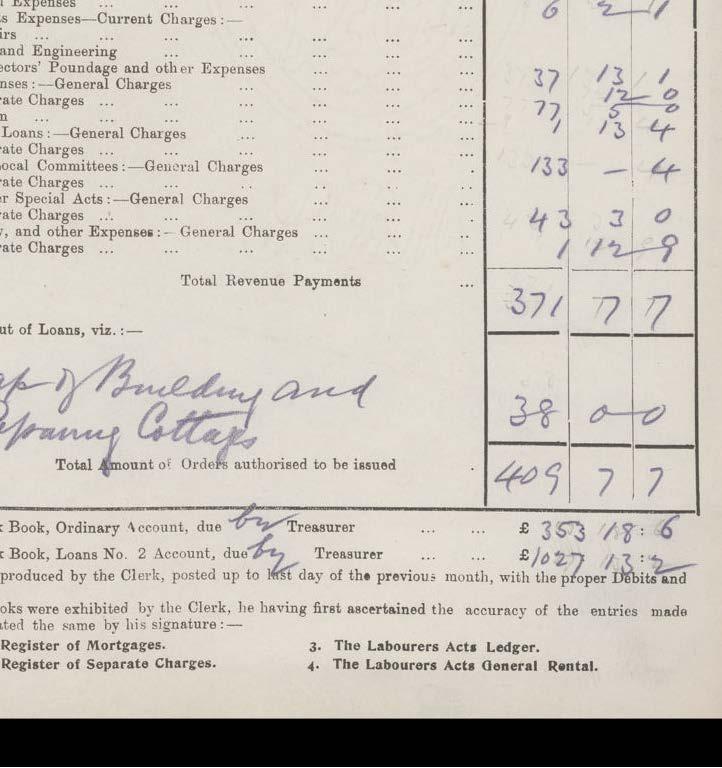 l Expenses ... ... ... ... ... 6 2 1
s Expenses—Current Charges:—
irs ... ... ... ... ... ...
and Engineering ... ... ... ...
ectors' Poundage and other Expenses ... ... 37 13 1
nses:—General Charges ... ... ... 12 0
ate Charges ... ... ... ... ... 77 5 0
n ... ... ... ... ... ... 1 13 4
Loans:—General Charges ... ... ...
ate Charges ... ... ... ... ...
ocal Committees:—General Charges ... ... 133 — 4
ate Charges ... ... ... ... ...
r Special Acts:—General Charges ... ...
ate Charges ... ... ... ... ... 43 3 0
, and other Expenses:— General Charges ... ...
ate Charges ... ... ... ... ... 1 12 9
Total Revenue Payments ... 371 7 7
ut of Loans, viz.:—
of Building and
Cottages 38 0 0
Total Amount of Orders authorised to be issued 409 7 7
Book, Ordinary Account, due by Treasurer ... ... £ 353 18: 6
Book, Loans No. 2 Account, due by Treasurer ... ... £1027 13:2
produced by the Clerk, posted up to last day of the previous month, with the proper Debits and
oks were exhibited by the Clerk, he having first ascertained the accuracy of the entries made
ated the same by his signature:—
Register of Mortgages. 3. The Labourers Acts Ledger.
Register of Separate Charges. 4. The Labourers Acts General Rental.